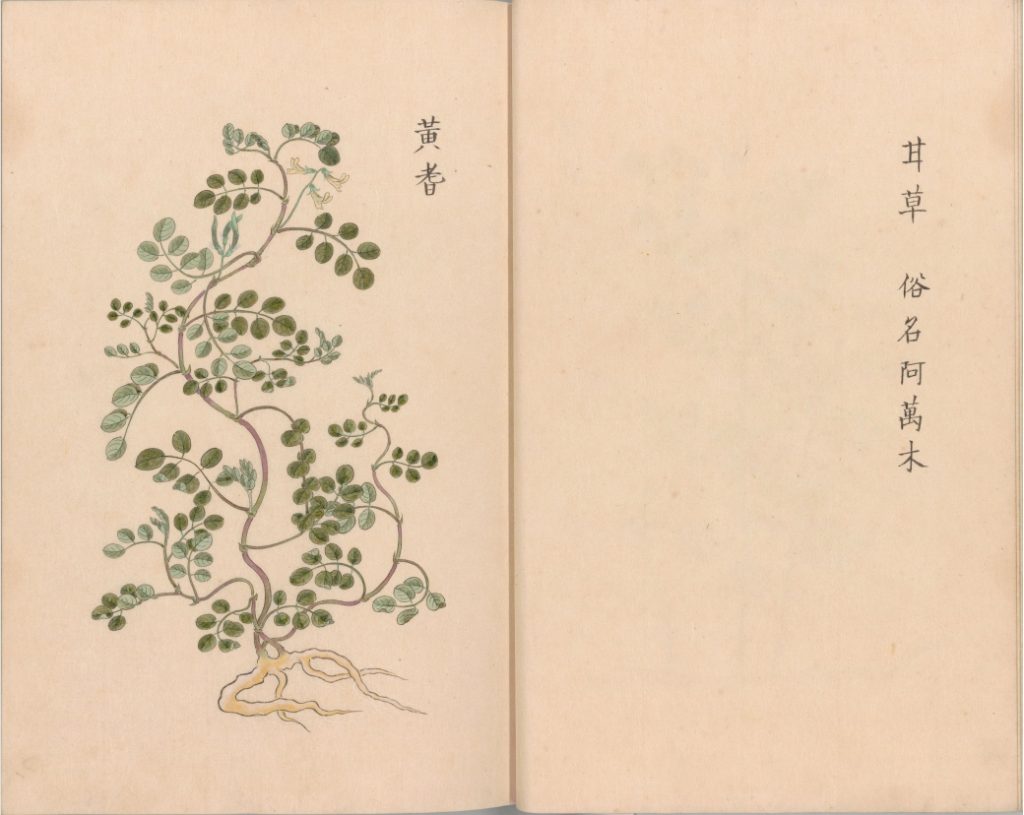 甘草　俗名阿萬木
黃耆